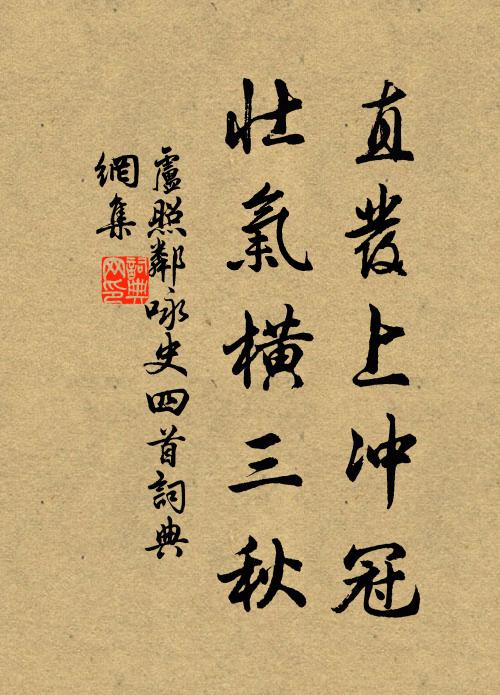 直發上冲冠
壯氣橫三秋
盧照鄰咏史四首詞典
網集
詞典網印